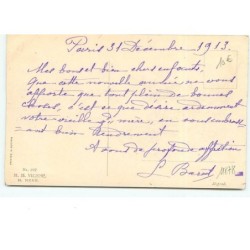 Paris 31 Décembre 1913.
10€
Mes bons et bien chers enfants.
Que cette nouvelle année ne vous
apporte que tout plein de bonnes
choses, c'est ce que désire ardemment
votre vieille g. mère, en vous embras-
sant bien tendrement
A vous de profonde affection
L.